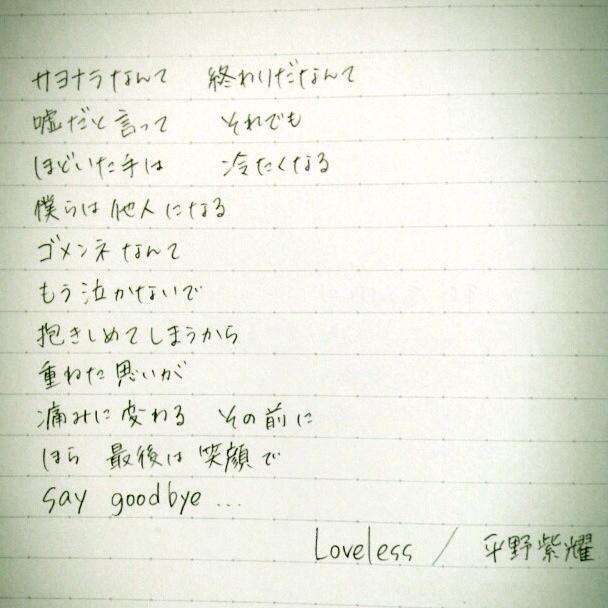 サヨナラなんて　終わりだなんて
嘘だと言って　それでも
ほどいた手は　冷たくなる
僕らは他人になる
ゴメンネなんて
もう泣かないで
抱きしめてしまうから
重ねた思いが
痛みに変わる　その前に
ほら　最後は笑顔で
say goodbye ...
Loveless / 平野紫耀